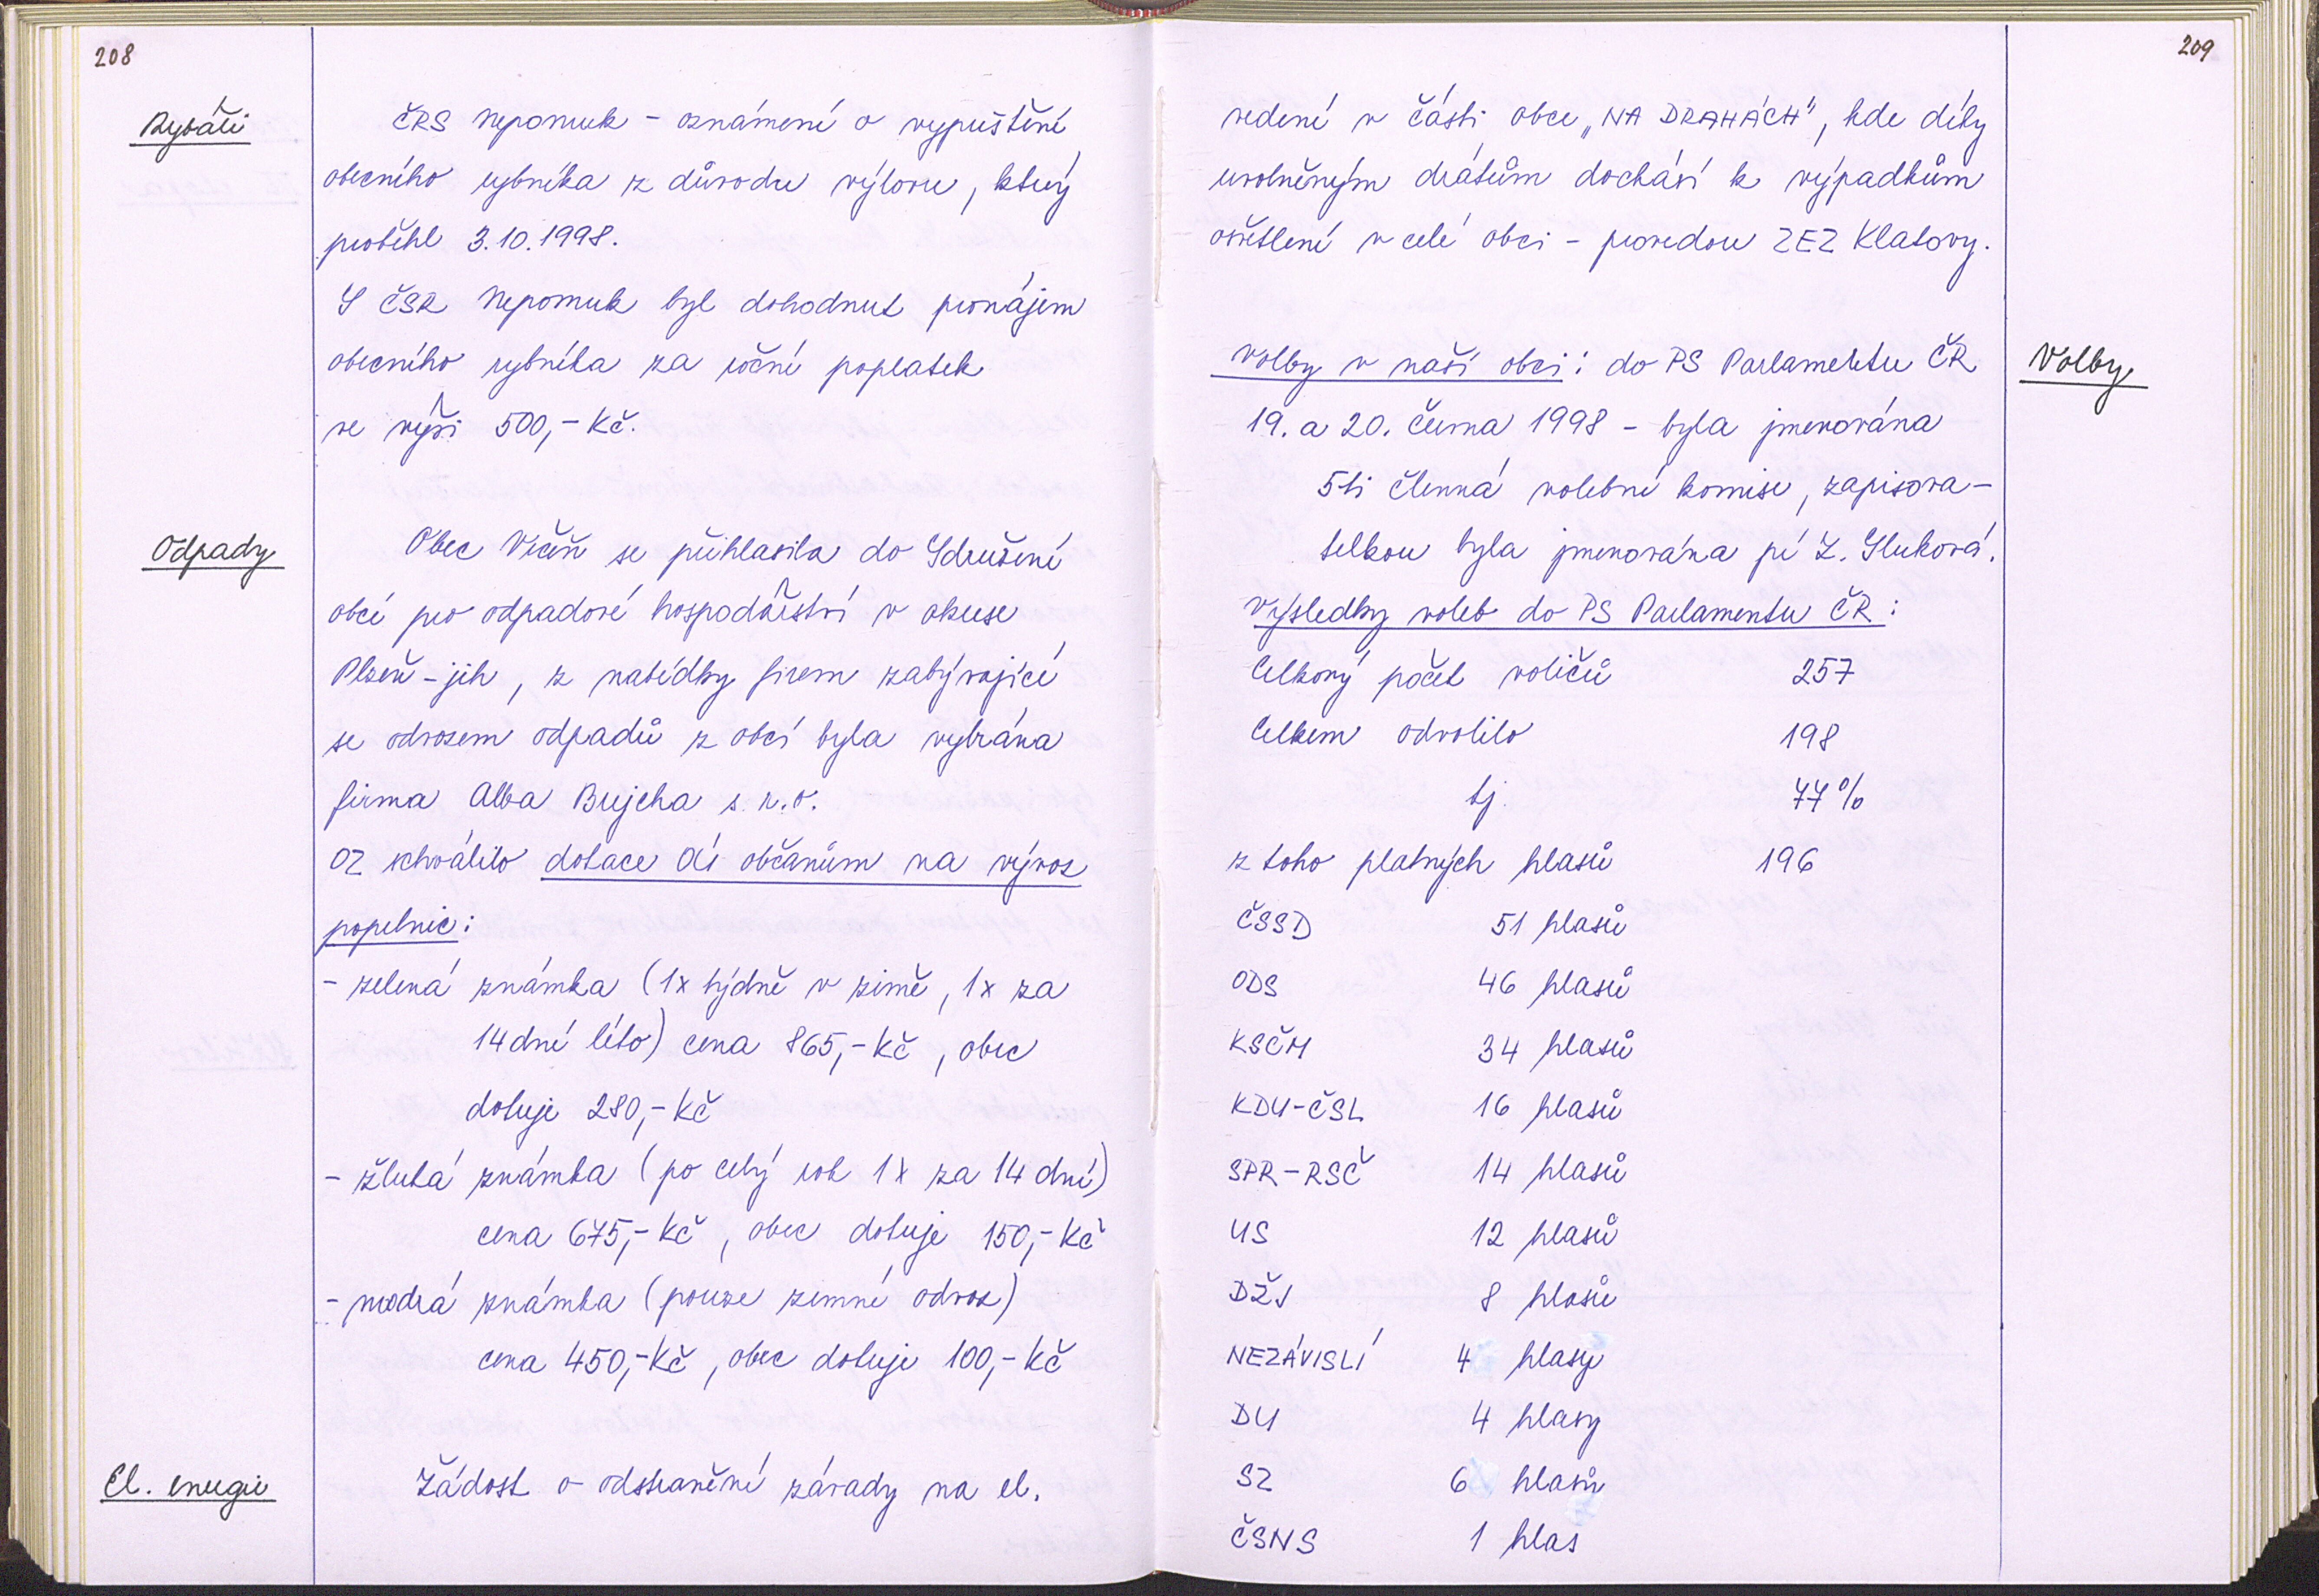 208
Rybáři
ČRS Nepomuk - oznámení o vypuštění
obecního rybníka z důvodu výlovu, který
proběhl 3.10.1998.
S ČSR Nepomuk byl dohodnut pronájem
obecního rybníka za roční poplatek
ve výši 500,- Kč.
Odpady
Obec Vrčeň se přihlasila do Sdružení
obcí pro odpadové hospodářství v okrese
Plzeň-jih, z nabídky firem zabývající
se odvozem odpadů z obcí byla vybrána
firma Alba Bujcha s.r.o.
OZ schválilo dotace OÚ občanům na vývoz
popelnic:
- zelená známka (1x týdně v zimě, 1x za
14 dní léto) cena 865,- Kč, obec
dotuje 280,- Kč
- žlutá známka (po celý rok 1x za 14 dní)
cena 675,- Kč, obec dotuje 150,- Kč
- modrá známka (pouze zimní odvoz)
cena 450,- Kč, obec dotuje 100,- Kč
El. energie
Žádost o odstranění závady na el.
209
vedení v části obce „NA DRAHÁCH", kde díky
uvolněným drátům dochází k výpadkům
osvětlení v celé obci - provedou ZEZ Klatovy.
Volby
Volby v naší obci: do PS Parlamentu ČR
19. a 20. června 1998 - byla jmenována
5ti členná volební komise, zapisova-
telkou byla jmenována pí Z. Sluková.
Výsledky voleb do PS Parlamentu ČR:
Celkový počet voličů 257
Celkem odvolilo 198
tj. 77%
z toho platných hlasů 196
ČSSD 51 hlasů
ODS 46 hlasů
KSČM 34 hlasů
KDU-ČSL 16 hlasů
SPR-RSČ 14 hlasů
US 12 hlasů
DŽJ 8 hlasů
NEZÁVISLÍ 4 hlasy
DU 4 hlasy
SZ 6 hlasů
ČSNS 1 hlas